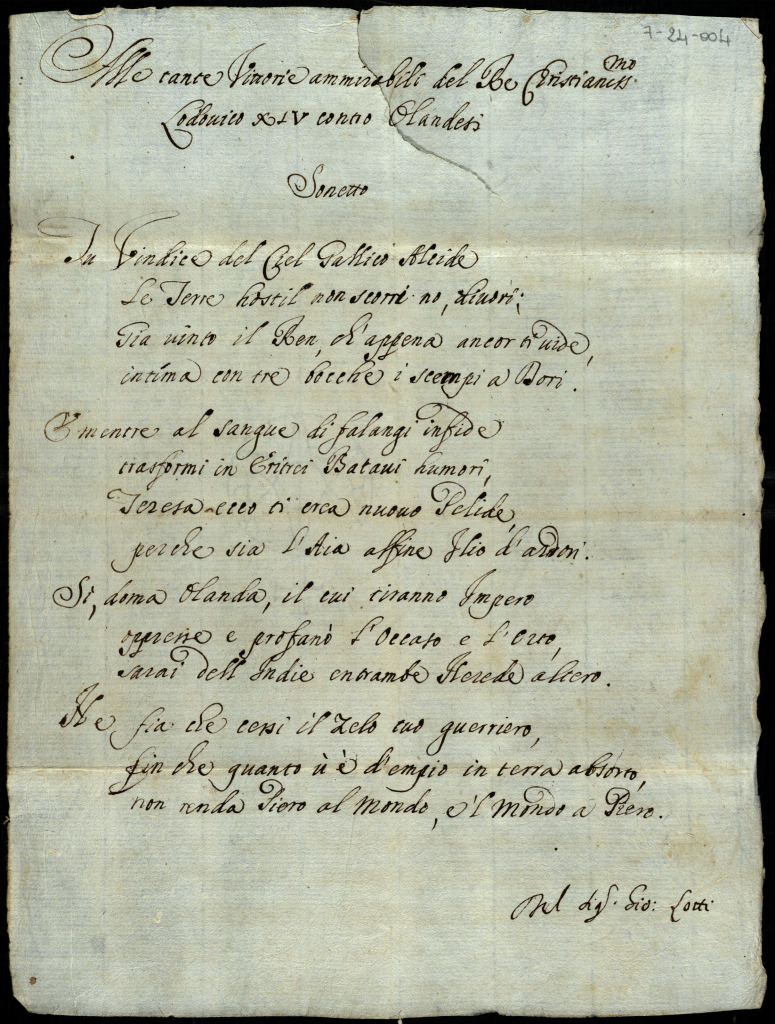 7-24-004
Alle tante Vittorie ammirabili del Re Christianiss.mo
Lodovico XIV contro Olandesi
Sonetto
Tu Vindice del Ciel Gallico Alcide
Le Terre hostil non scorri no, divori;
Gia vinto il Ren, ch'appena ancor ti vide,
intima con tre bocche i scempi a Dori.
E mentre al sangue di falangi infide
trasformi in Eritrei Batavi humori,
Teresa ecco ti crea nuovo Pelide,
perche sia l'Aia affine Ilio d'ardori.
Sì, doma Olanda, il cui tiranno Impero
oppresse e profanò l'Occaso e l'Orto,
sarai dell'Indie entrambe Herede altero.
Ne fia che cessi il Zelo tuo guerriero,
fin che quanto v'è d'empio in terra absorto,
non renda Piero al Mondo, e'l Mondo a Piero.
Del Sig.r Gio: Lotti